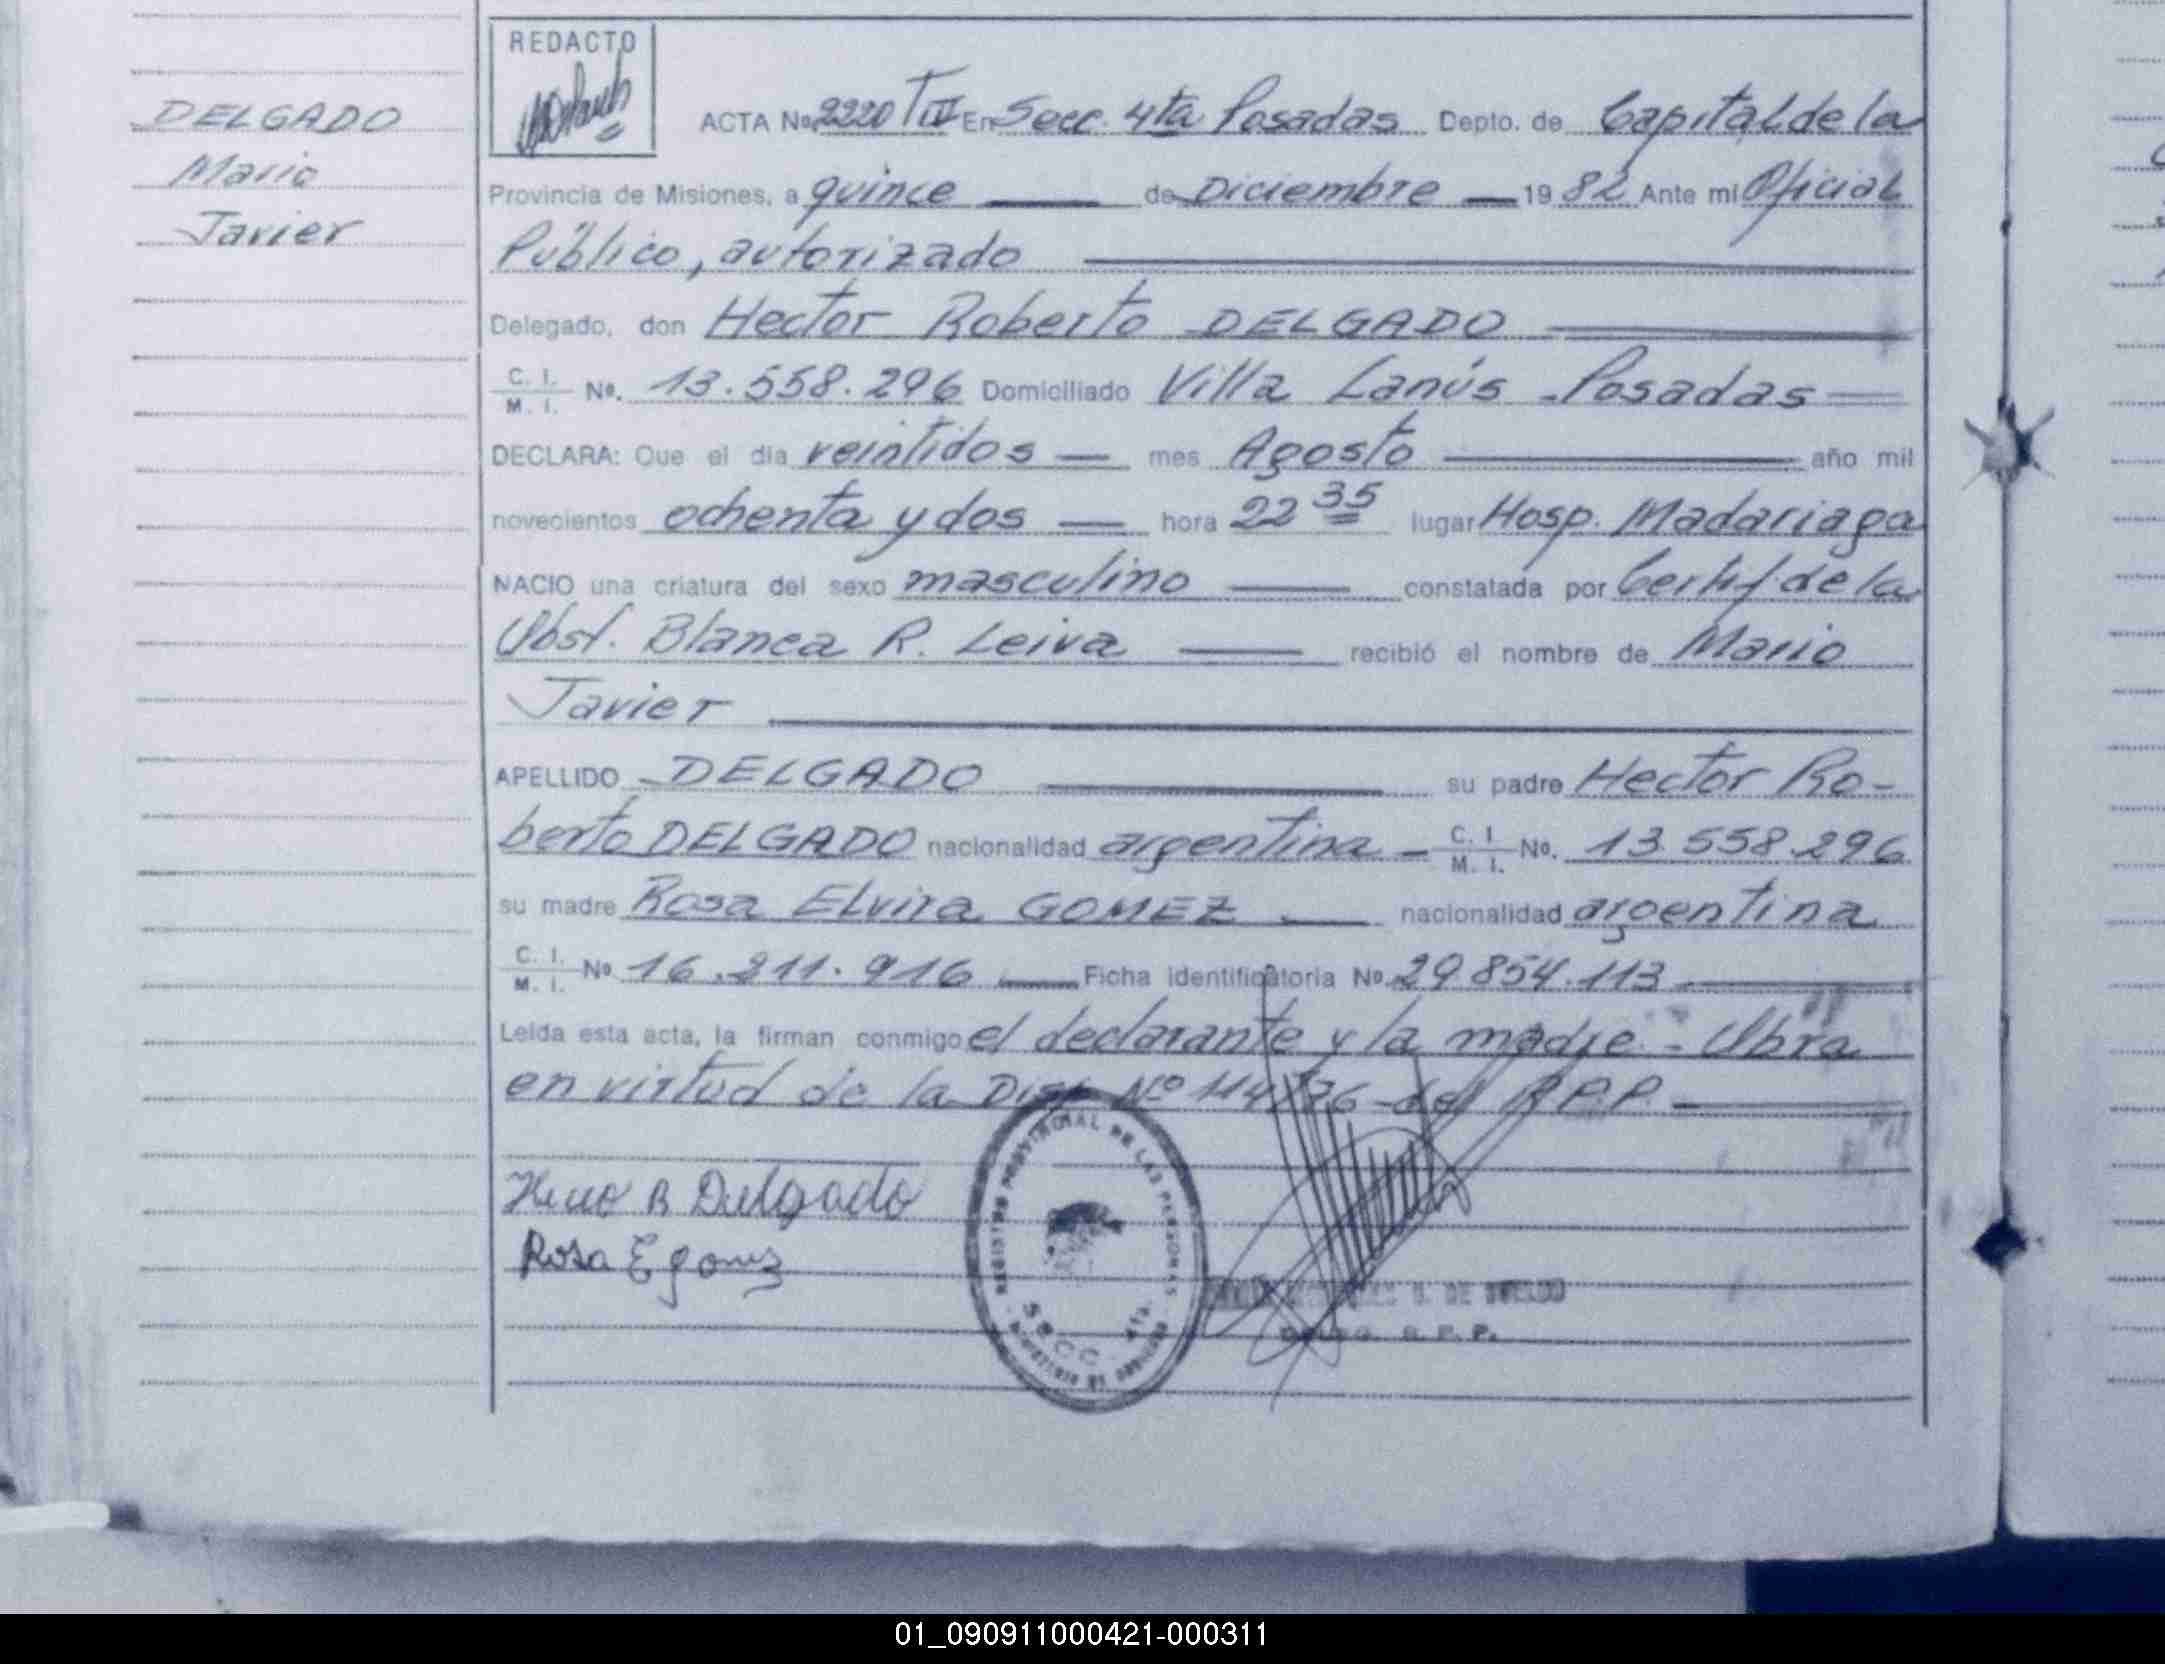 DELGADO
Mario
Javier
REDACTO
ACTA No. 2220 T III En Secc. 4ta Posadas Depto. de Capital de la
Provincia de Misiones, a quince de Diciembre 1982 Ante mi Oficial
Público, autorizado
Delegado, don Hector Roberto DELGADO
C. I. M. I. No. 13.558.296 Domiciliado Villa Lanús - Posadas
DECLARA: Que el dia veintidos mes Agosto año mil
novecientos ochenta y dos hora 22 35 lugar Hosp. Madariaga
NACIO una criatura del sexo masculino constatada por Certif. de la
Obst. Blanca R. Leiva recibió el nombre de Mario
Javier
APELLIDO DELGADO su padre Hector Ro-
berto DELGADO nacionalidad argentina - C. I. M. I. No. 13.558.296
su madre Rosa Elvira GOMEZ nacionalidad argentina
C. I. M. I. No 16.211.916 Ficha identificatoria No. 29.854.113
Leida esta acta, la firman conmigo el declarante y la madre. - Obra
en virtud de la Disp. Nº 114/76 del R.P.P.
REGISTRO PROVINCIAL DE LAS PERSONAS
SECC. 4ta.
B Delgado
Rosa E gomez
R. P. P.
01_090911000421-000311